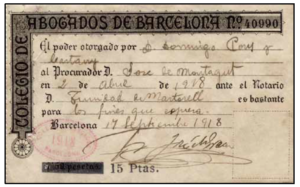 COLEGIO DE ABOGADOS DE BARCELONA Nº 40990
El poder otorgado por D. Domingo Pons y
al Procurador D. Jose de
en 2 de Abril de 1918 ante el Notario
D. Trinidad de es bastante
para los fines que expresa.
Barcelona 17 Septiembre 1918
15 Ptas.